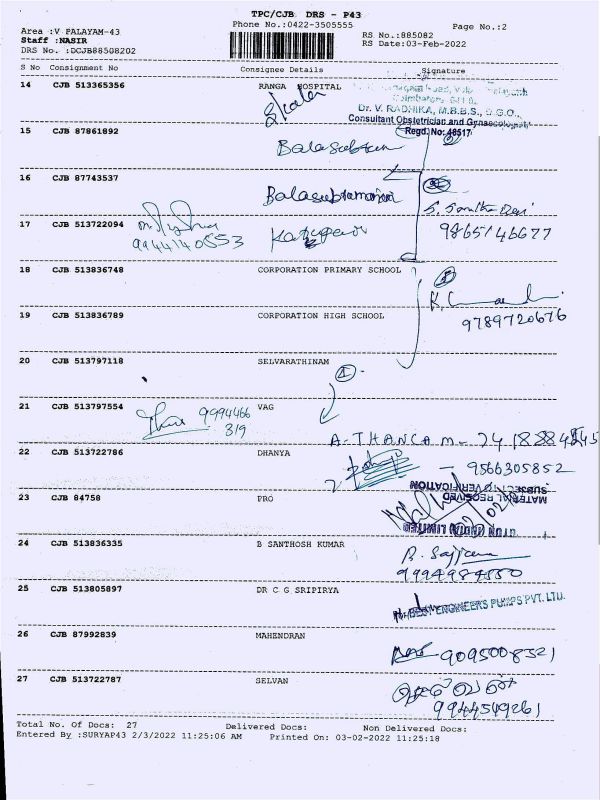 TPC/CJB DRS - P43
Area :V PALAYAM-43
Phone No.:0422-3505555
Page No.:2
Staff :NASIR
RS No.:885082
DRS No. :DCJB88508202
RS Date:03-Feb-2022
S No Consignment No Consignee Details Signature
14 CJB 513365356 RANGA HOSPITAL
Dr. V. RADHIKA, M.B.B.S., D.G.O.,
Consultant Obstetrician and Gynaecologist
Regd. No: 48517
15 CJB 87861892
16 CJB 87743537
Balasubramaniam
17 CJB 513722094
9944140553
9865146677
18 CJB 513836748 CORPORATION PRIMARY SCHOOL
19 CJB 513836789 CORPORATION HIGH SCHOOL
9789720676
20 CJB 513797118 SELVARATHINAM
21 CJB 513797554 VAG
9994466
319
A. THANGAM
22 CJB 513722786 DHANYA
9566305852
23 CJB 84758 PRO
MATERIAL RECEIVED
SUBJECT TO VERIFICATION
24 CJB 513836335 B SANTHOSH KUMAR
25 CJB 513805897 DR C G SRIPIRYA
ENGINEERS PUMPS PVT. LTD.
26 CJB 87992839 MAHENDRAN
9095008321
27 CJB 513722787 SELVAN
9944549261
Total No. Of Docs: 27 Delivered Docs: Non Delivered Docs:
Entered By :SURYAP43 2/3/2022 11:25:06 AM Printed On: 03-02-2022 11:25:18